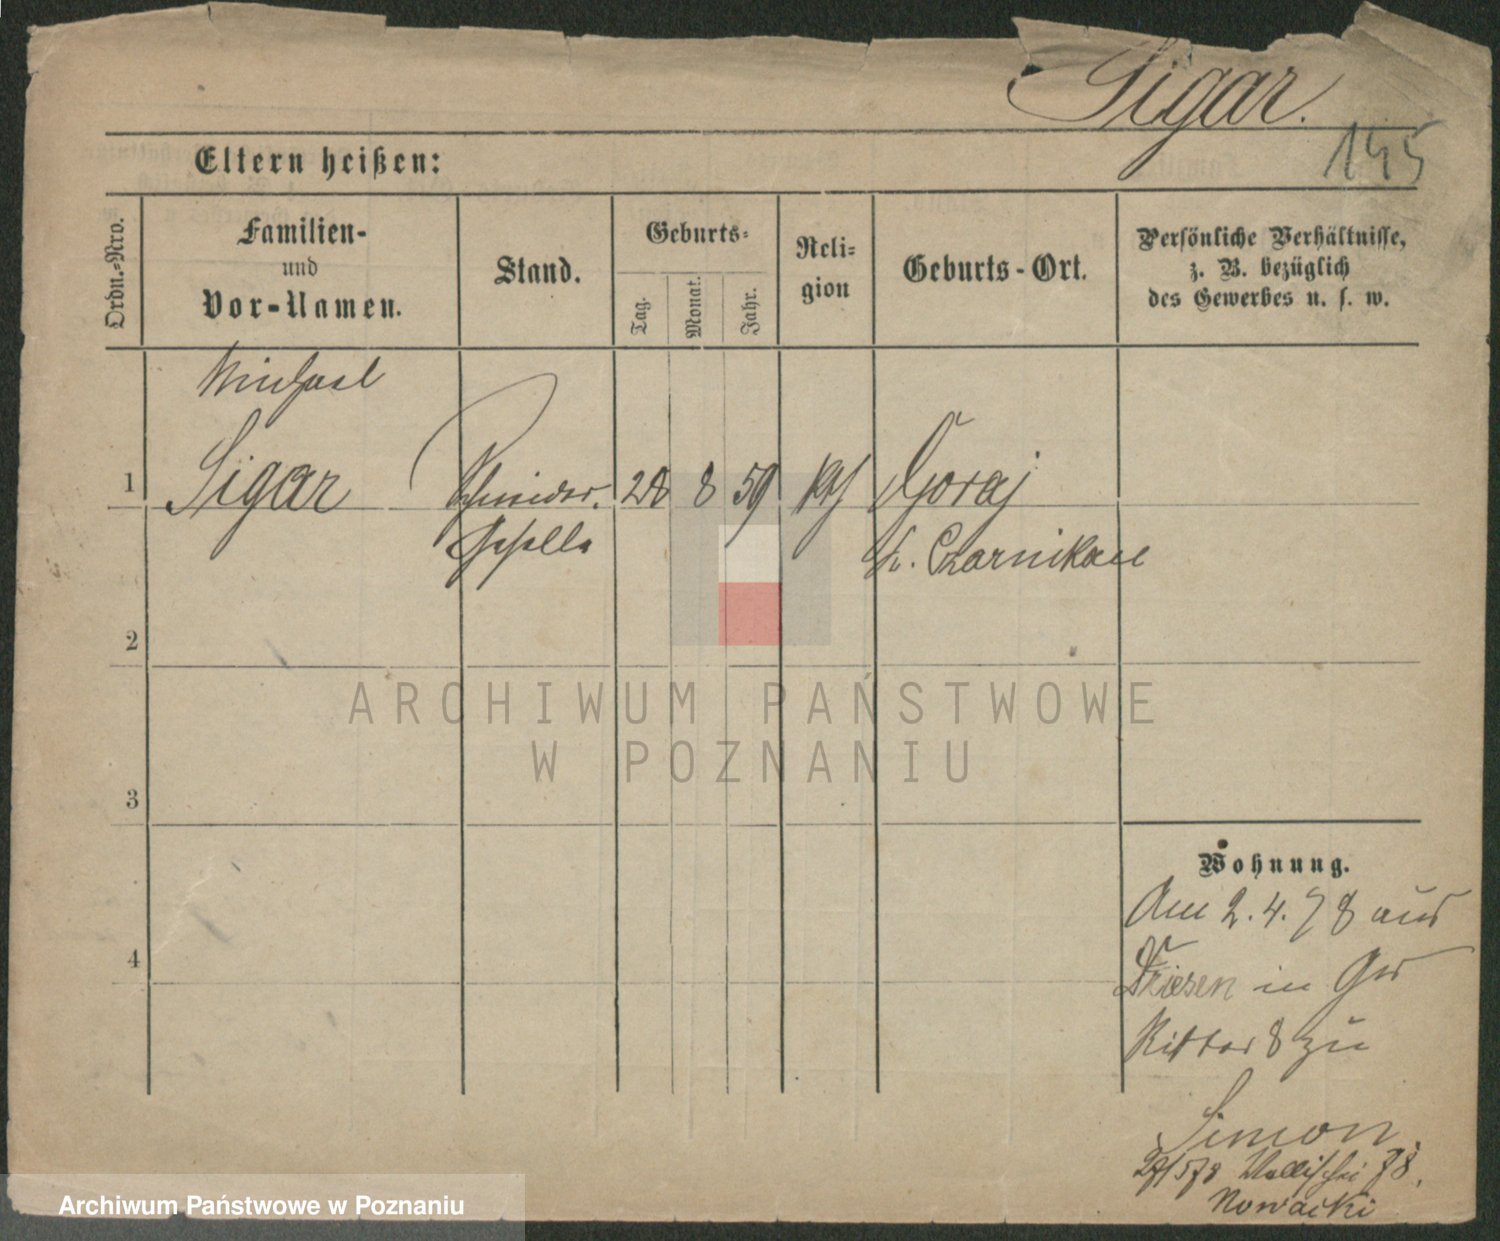 Sigar.
145
Eltern heißen:
Ordn.-Nro.
Familien-
und
Vor-Namen.
Stand.
Geburts-
Tag.
Monat.
Jahr.
Reli-
gion
Geburts-Ort.
Persönliche Verhältnisse,
z. B. bezüglich
des Gewerbes u. s. w.
Michael
1 Sigar Schneider- 28 8 59 kth Goraj
Geselle Kr. Czarnikau
2
3
4
Wohnung.
Am 2.4.78 aus
Driesen in Gr
Ritter 8 zu
Simon.
27/5 78 Wallischei 78.
Nowacki
ARCHIWUM PAŃSTWOWE
W POZNANIU
Archiwum Państwowe w Poznaniu